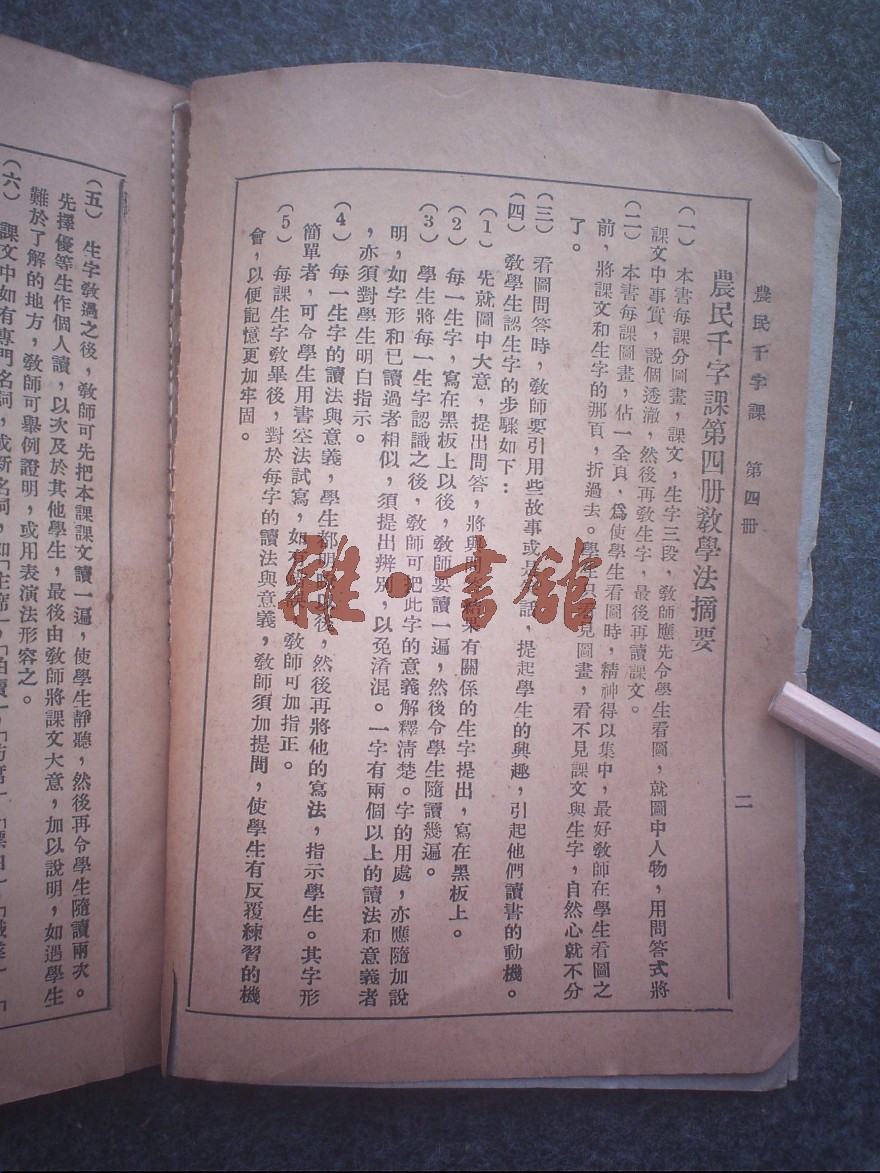 農民千字課　第四冊
二
農民千字課第四册敎學法摘要
(一)　本書每課分圖畫，課文，生字三段，敎師應先令學生看圖，就圖中人物，用問答式將
課文中事實，說個透澈，然後再敎生字，最後再讀課文。
(二)　本書每課圖畫，佔一全頁，爲使學生看圖時，精神得以集中，最好敎師在學生看圖之
前，將課文和生字的那頁，折過去。學生只看見圖畫，看不見課文與生字，自然心就不分
了。
(三)　看圖問答時，敎師要引用些故事或是話，提起學生的興趣，引起他們讀書的動機。
(四)　敎學生認生字的步驟如下：
(1)　先就圖中大意，提出問答，將與問答結果有關係的生字提出，寫在黑板上。
(2)　每一生字，寫在黑板上以後，敎師要讀一遍，然後令學生隨讀幾遍。
(3)　學生將每一生字認識之後，敎師可把此字的意義解釋清楚。字的用處，亦應隨加說
明，如字形和已讀過者相似，須提出辨別，以免淆混。一字有兩個以上的讀法和意義者
，亦須對學生明白指示。
(4)　每一生字的讀法與意義，學生都明瞭以後，然後再將他的寫法，指示學生。其字形
簡單者，可令學生用書空法試寫，如有錯誤，敎師可加指正。
(5)　每課生字敎畢後，對於每字的讀法與意義，敎師須加提問，使學生有反覆練習的機
會，以便記憶更加牢固。
(五)　生字敎過之後，敎師可先把本課課文讀一遍，使學生靜聽，然後再令學生隨讀兩次。
先擇優等生作個人讀，以次及於其他學生，最後由敎師將課文大意，加以說明，如遇學生
難於了解的地方，敎師可舉例證明，或用表演法形容之。
(六)　課文中如有專門名詞，或新名詞，如「主席」，
雜·書館